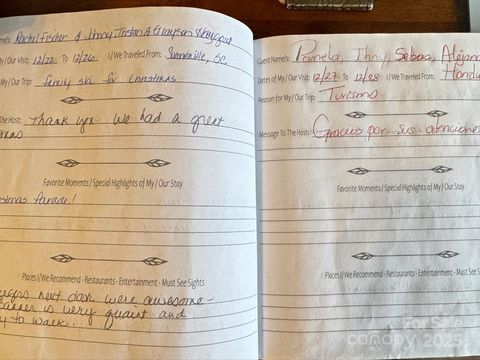 Name/s: Rachel Fischer & Henry, Tristan & Grayson
My / Our Visit: 12/22 To 12/26 I/We Traveled From: Summerville, SC
My / Our Trip: family ski for Christmas
The Host: Thank you. We had a great
Favorite Moments / Special Highlights of My / Our Stay
stmas Parade!
Places I/We Recommend - Restaurants - Entertainment - Must See Sights
next door were awesome -
is very quaint and
y to walk.
Guest Name/s: Pamela, Ihny, Sebas, Alejan
Dates of My / Our Visit: 12/27 To 12/28 I/We Traveled From: Hondu
Reason for My / Our Trip: Turismo
Message To The Host: Gracias por sus atenciones
Favorite Moments / Special Highlights of My / Our Stay
Places I/We Recommend - Restaurants - Entertainment - Must See S
canopy 2025